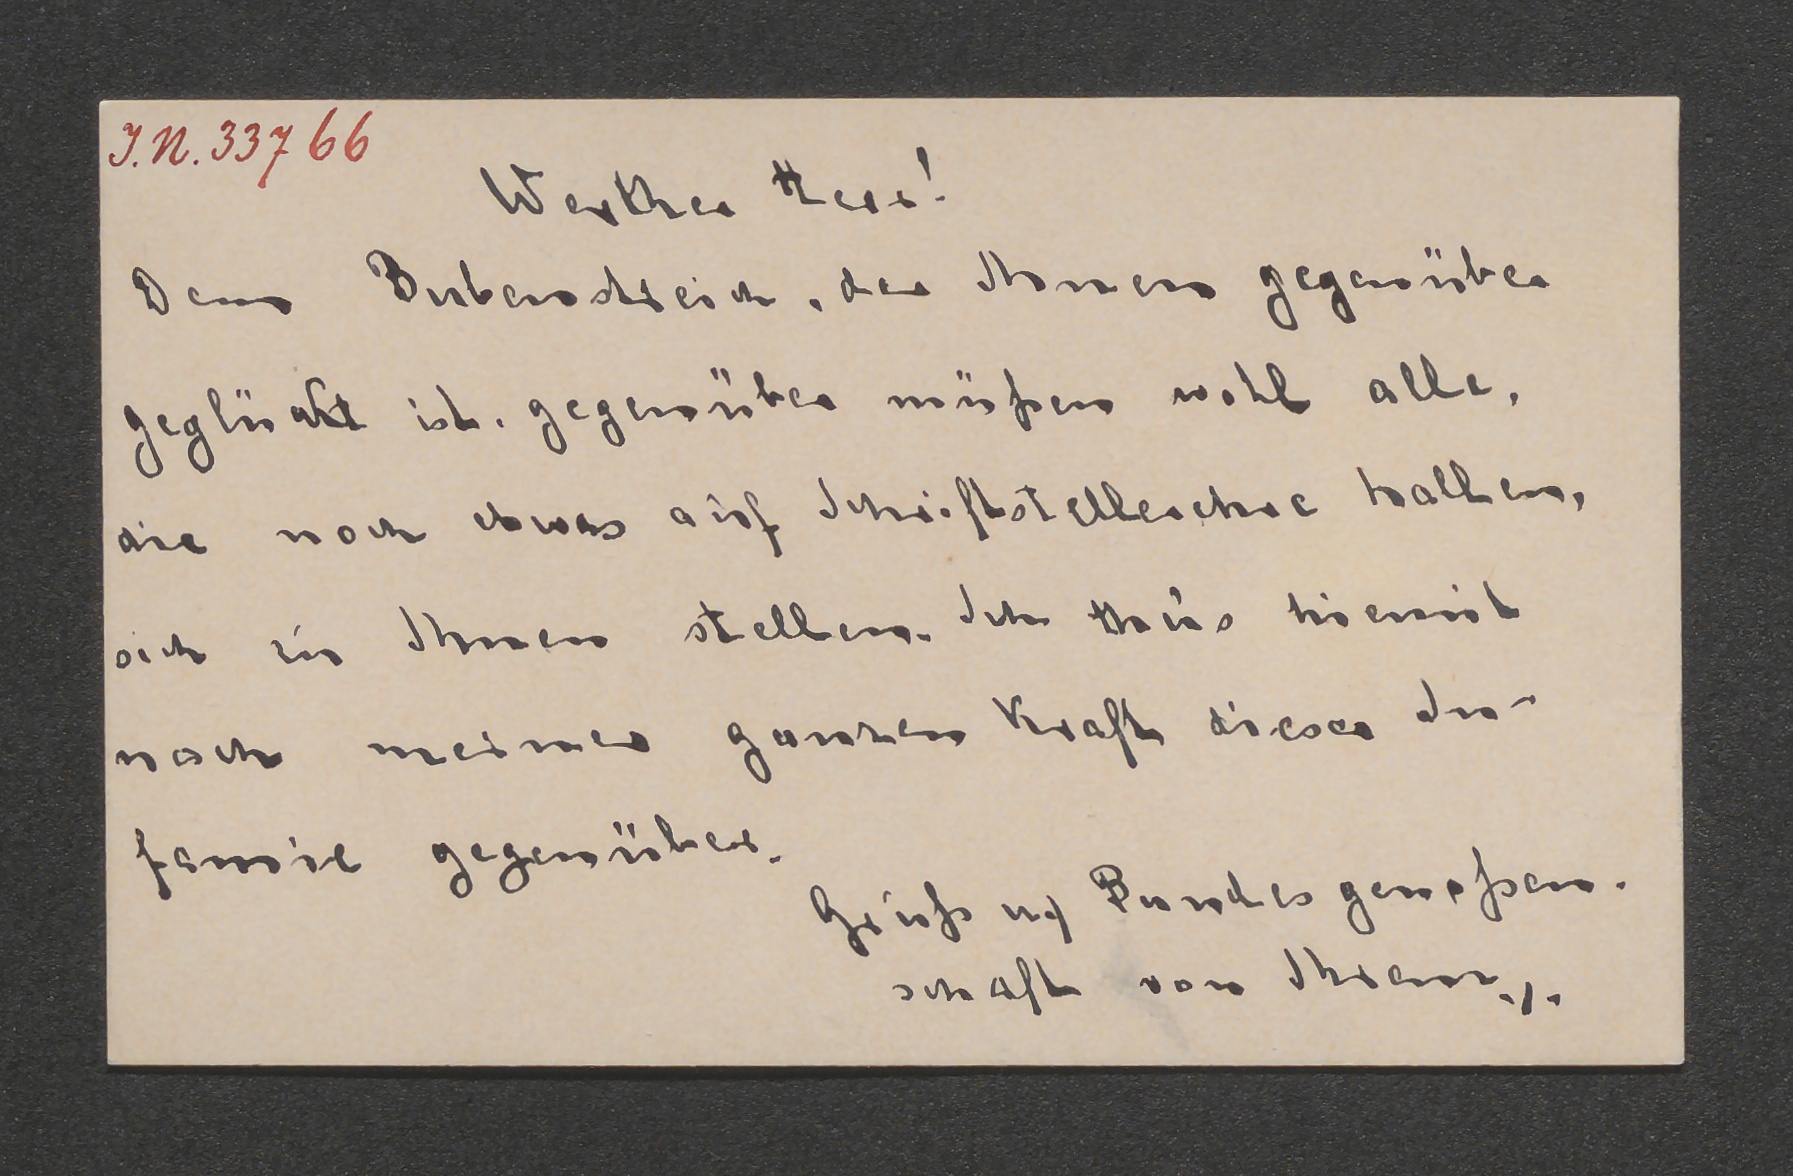 J.N. 33766
Werther Herr!
Dem Bubenstreich, der Ihnen gegenüber
geglückt ist, gegenüber müßen wohl alle,
die noch etwas auf Schriftstellerehre halten,
sich zu Ihnen stellen. Ich thu's hiemit
nach meiner ganzen Kraft dieser In-
famie gegenüber.
Gruß und Bundesgenoßen-
schaft von Ihrem ./.